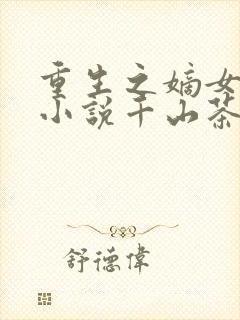 重生之嫡女
小说千山茶
舒德偉